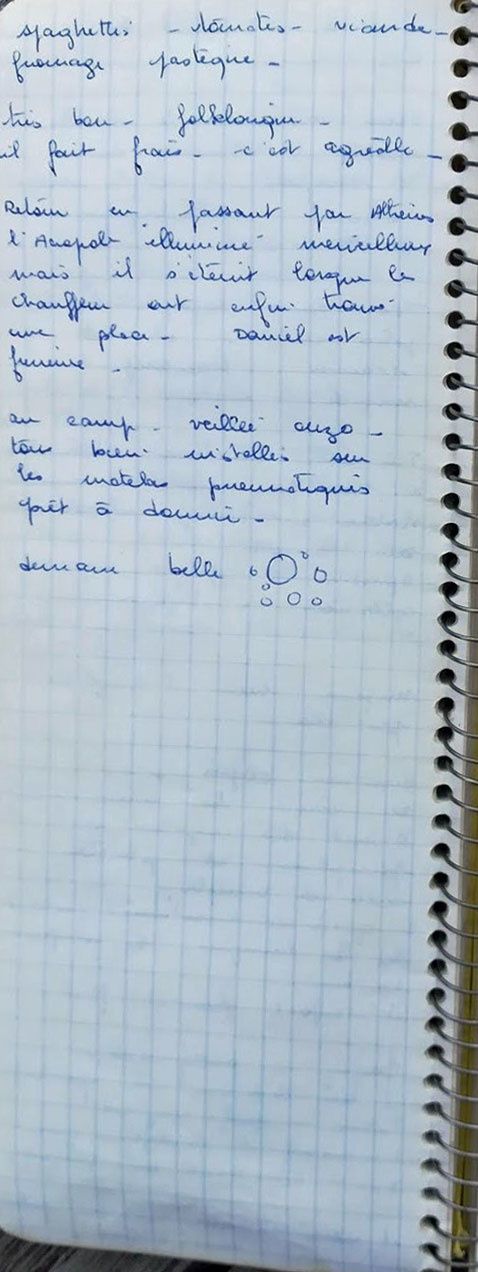 spaghettis - tomates - viande -
fromage pastèque -
très bon - folklorique -
il fait frais - c'est agréable -
Retour en passant par Athènes
l'Acropole illuminé merveilleux
mais il s'éteint lorsque le
chauffeur ont enfin trouvé
une place - Daniel est
furieuse -
au camp - veillée ouzo -
tous bien installés sur
les matelas pneumatiques
prêt à dormir -
demain belle